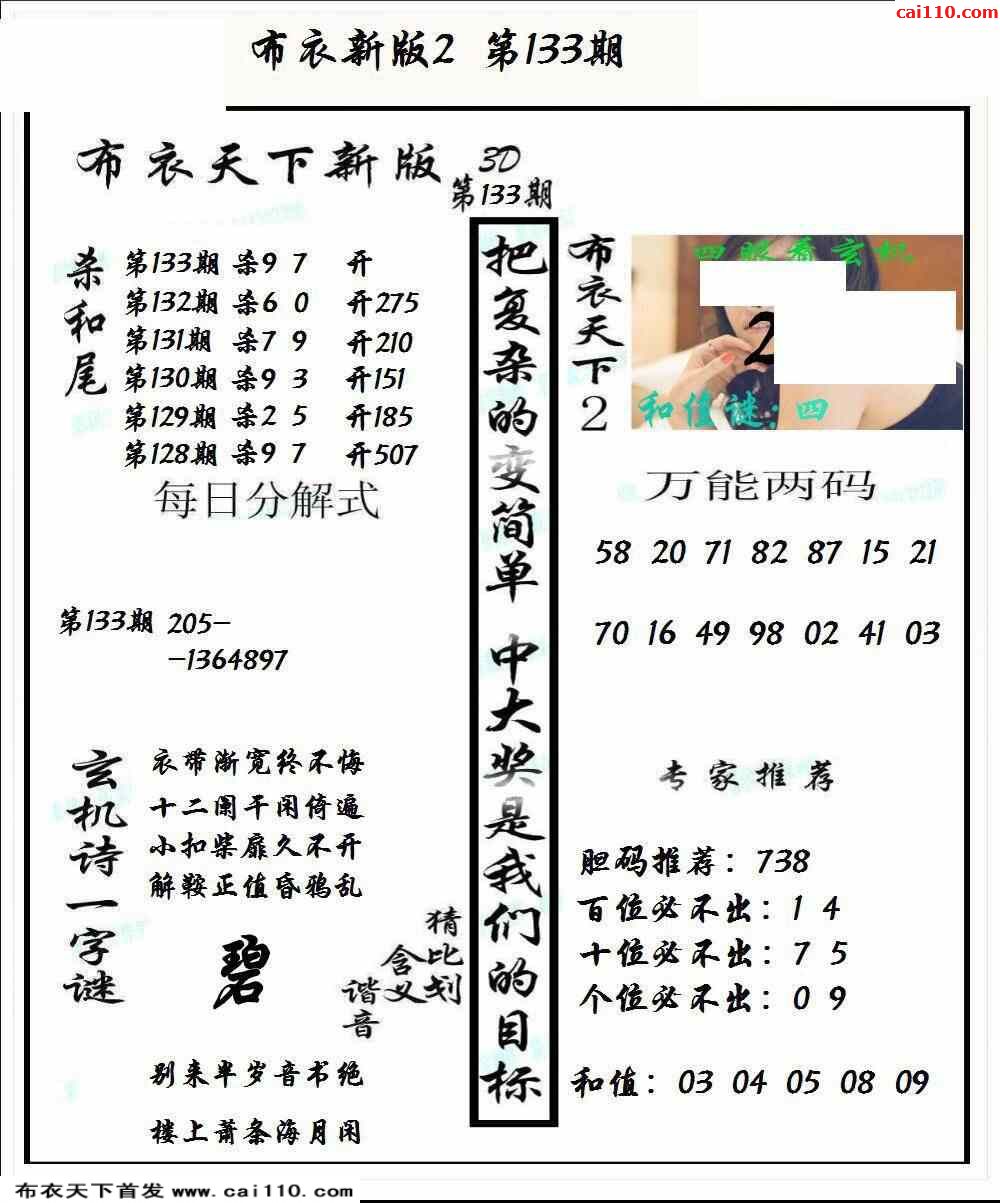 cai110.com
布衣新版2 第133期
布衣天下新版 3D
第133期
杀和尾
第133期 杀9 7 开
第132期 杀6 0 开275
第131期 杀7 9 开210
第130期 杀9 3 开151
第129期 杀2 5 开185
第128期 杀9 7 开507
每日分解式
第133期 205-
-1364897
玄机诗一字谜
衣带渐宽终不悔
十二阑干闲倚遍
小扣柴扉久不开
解鞍正值昏鸦乱
碧
猜比划
含义
谐音
别来半岁音书绝
楼上萧条海月闲
把复杂的变简单 中大奖是我们的目标
布衣天下2
四眼看玄机
2
和值谜:四
万能两码
58 20 71 82 87 15 21
70 16 49 98 02 41 03
专家推荐
胆码推荐：738
百位必不出：1 4
十位必不出：7 5
个位必不出：0 9
和值：03 04 05 08 09
布衣天下首发 www.cai110.com